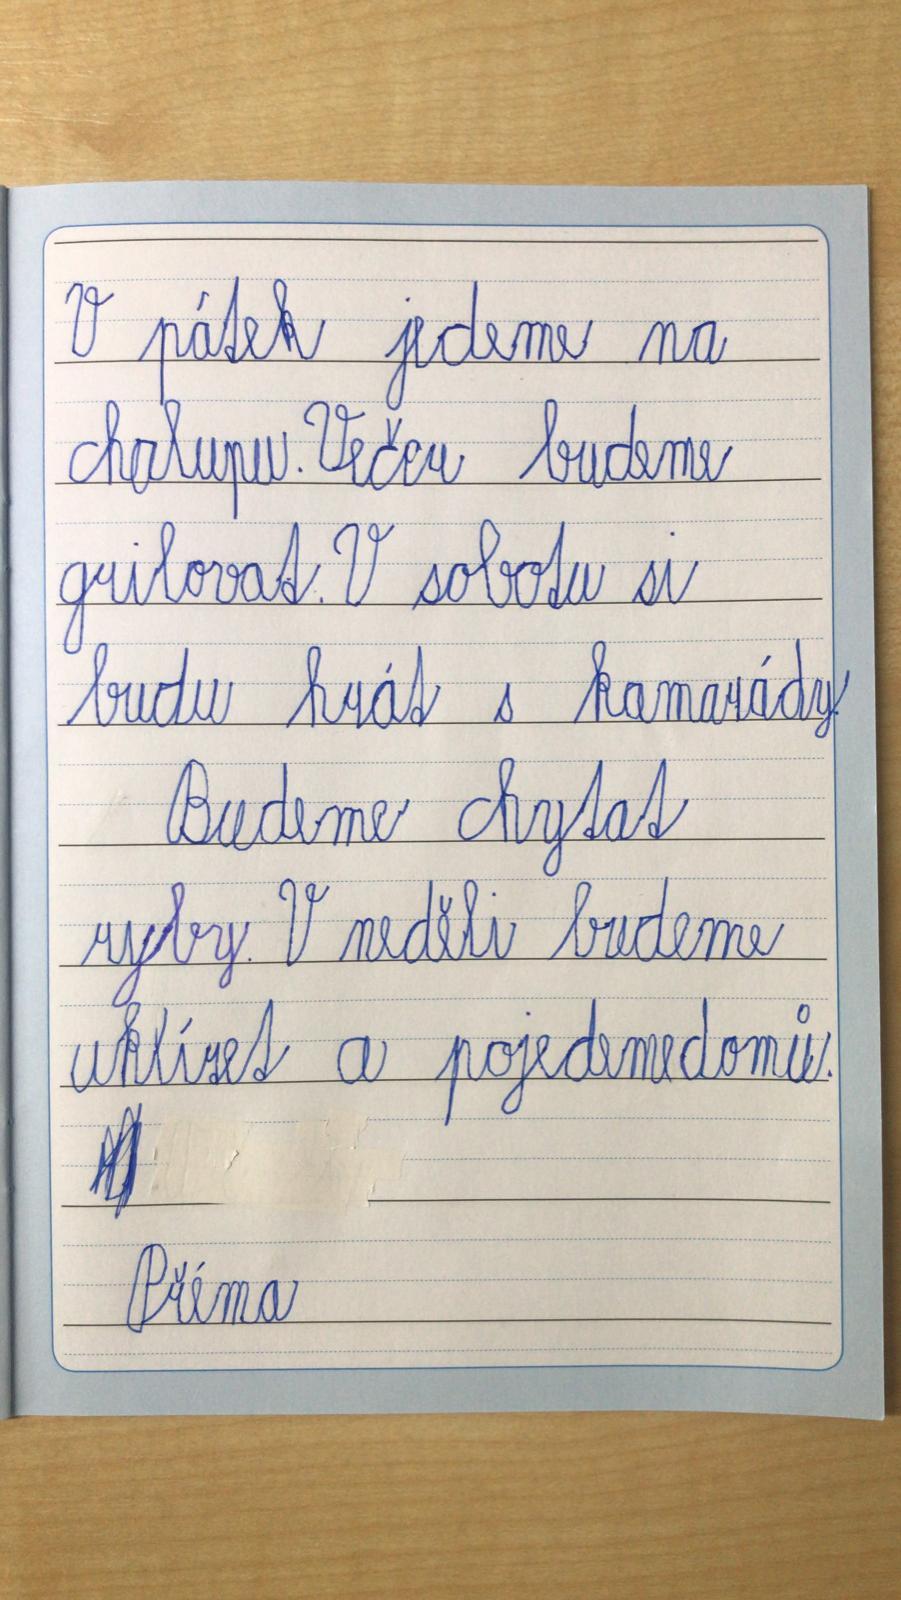 V pátek jedeme na
chalupu. Večer budeme
grilovat. V sobotu si
budu hrát s kamarády.
Budeme chytat
ryby. V neděli budeme
uklízet a pojedemedomů.
Přéma